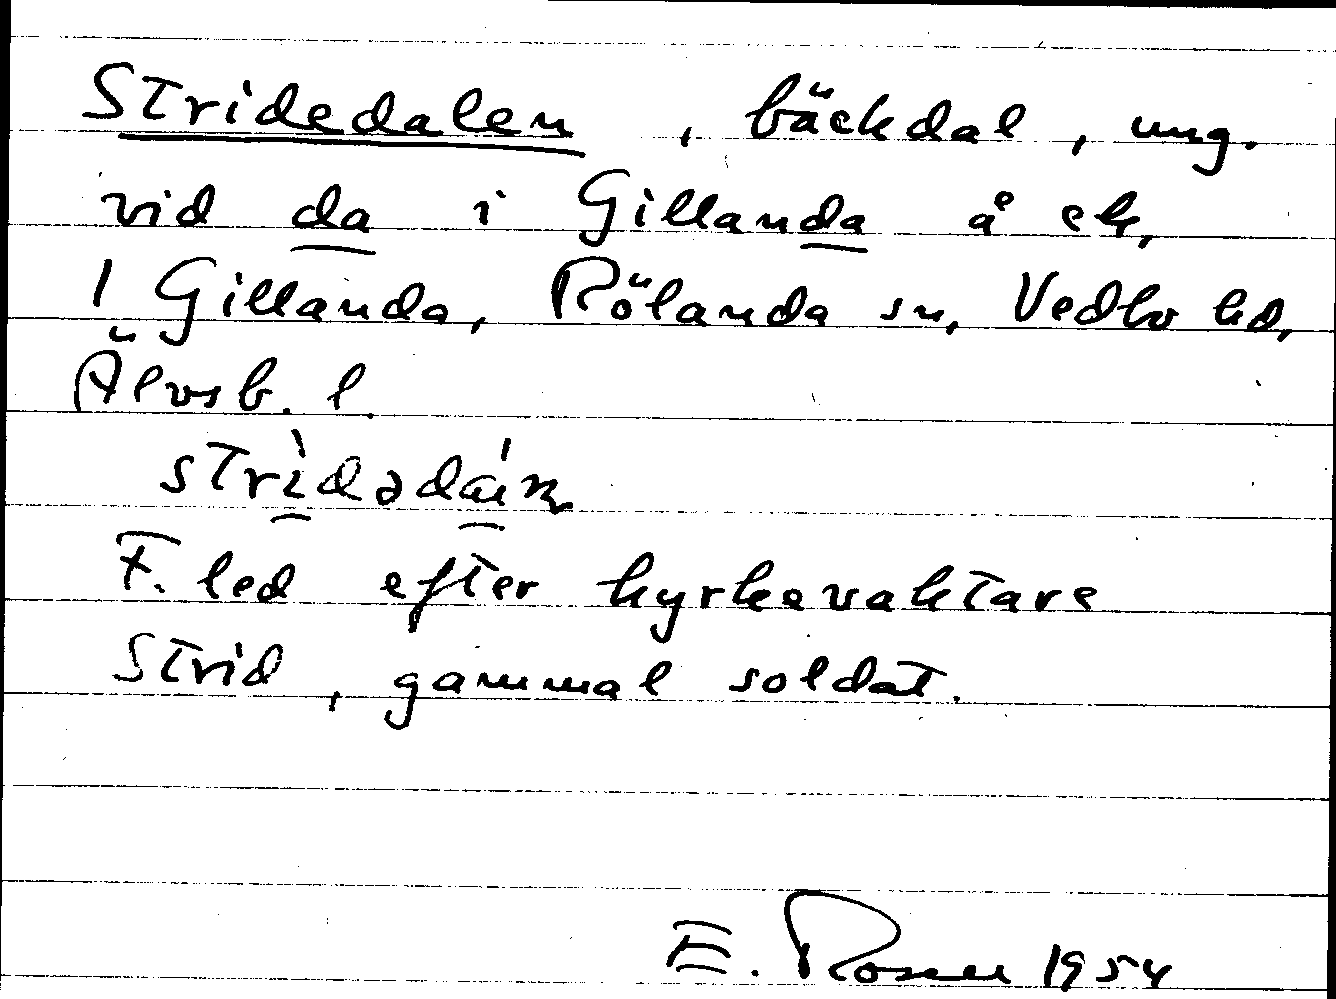 Stridedalen, bäckdal, ung.
vid da i Gillanda å ek,
1 Gillanda, Rölanda sn, Vedbo hd,
Älvsb. l.
F. led efter kyrkovaktare
Strid, gammal soldat.
E. Rosell 1954